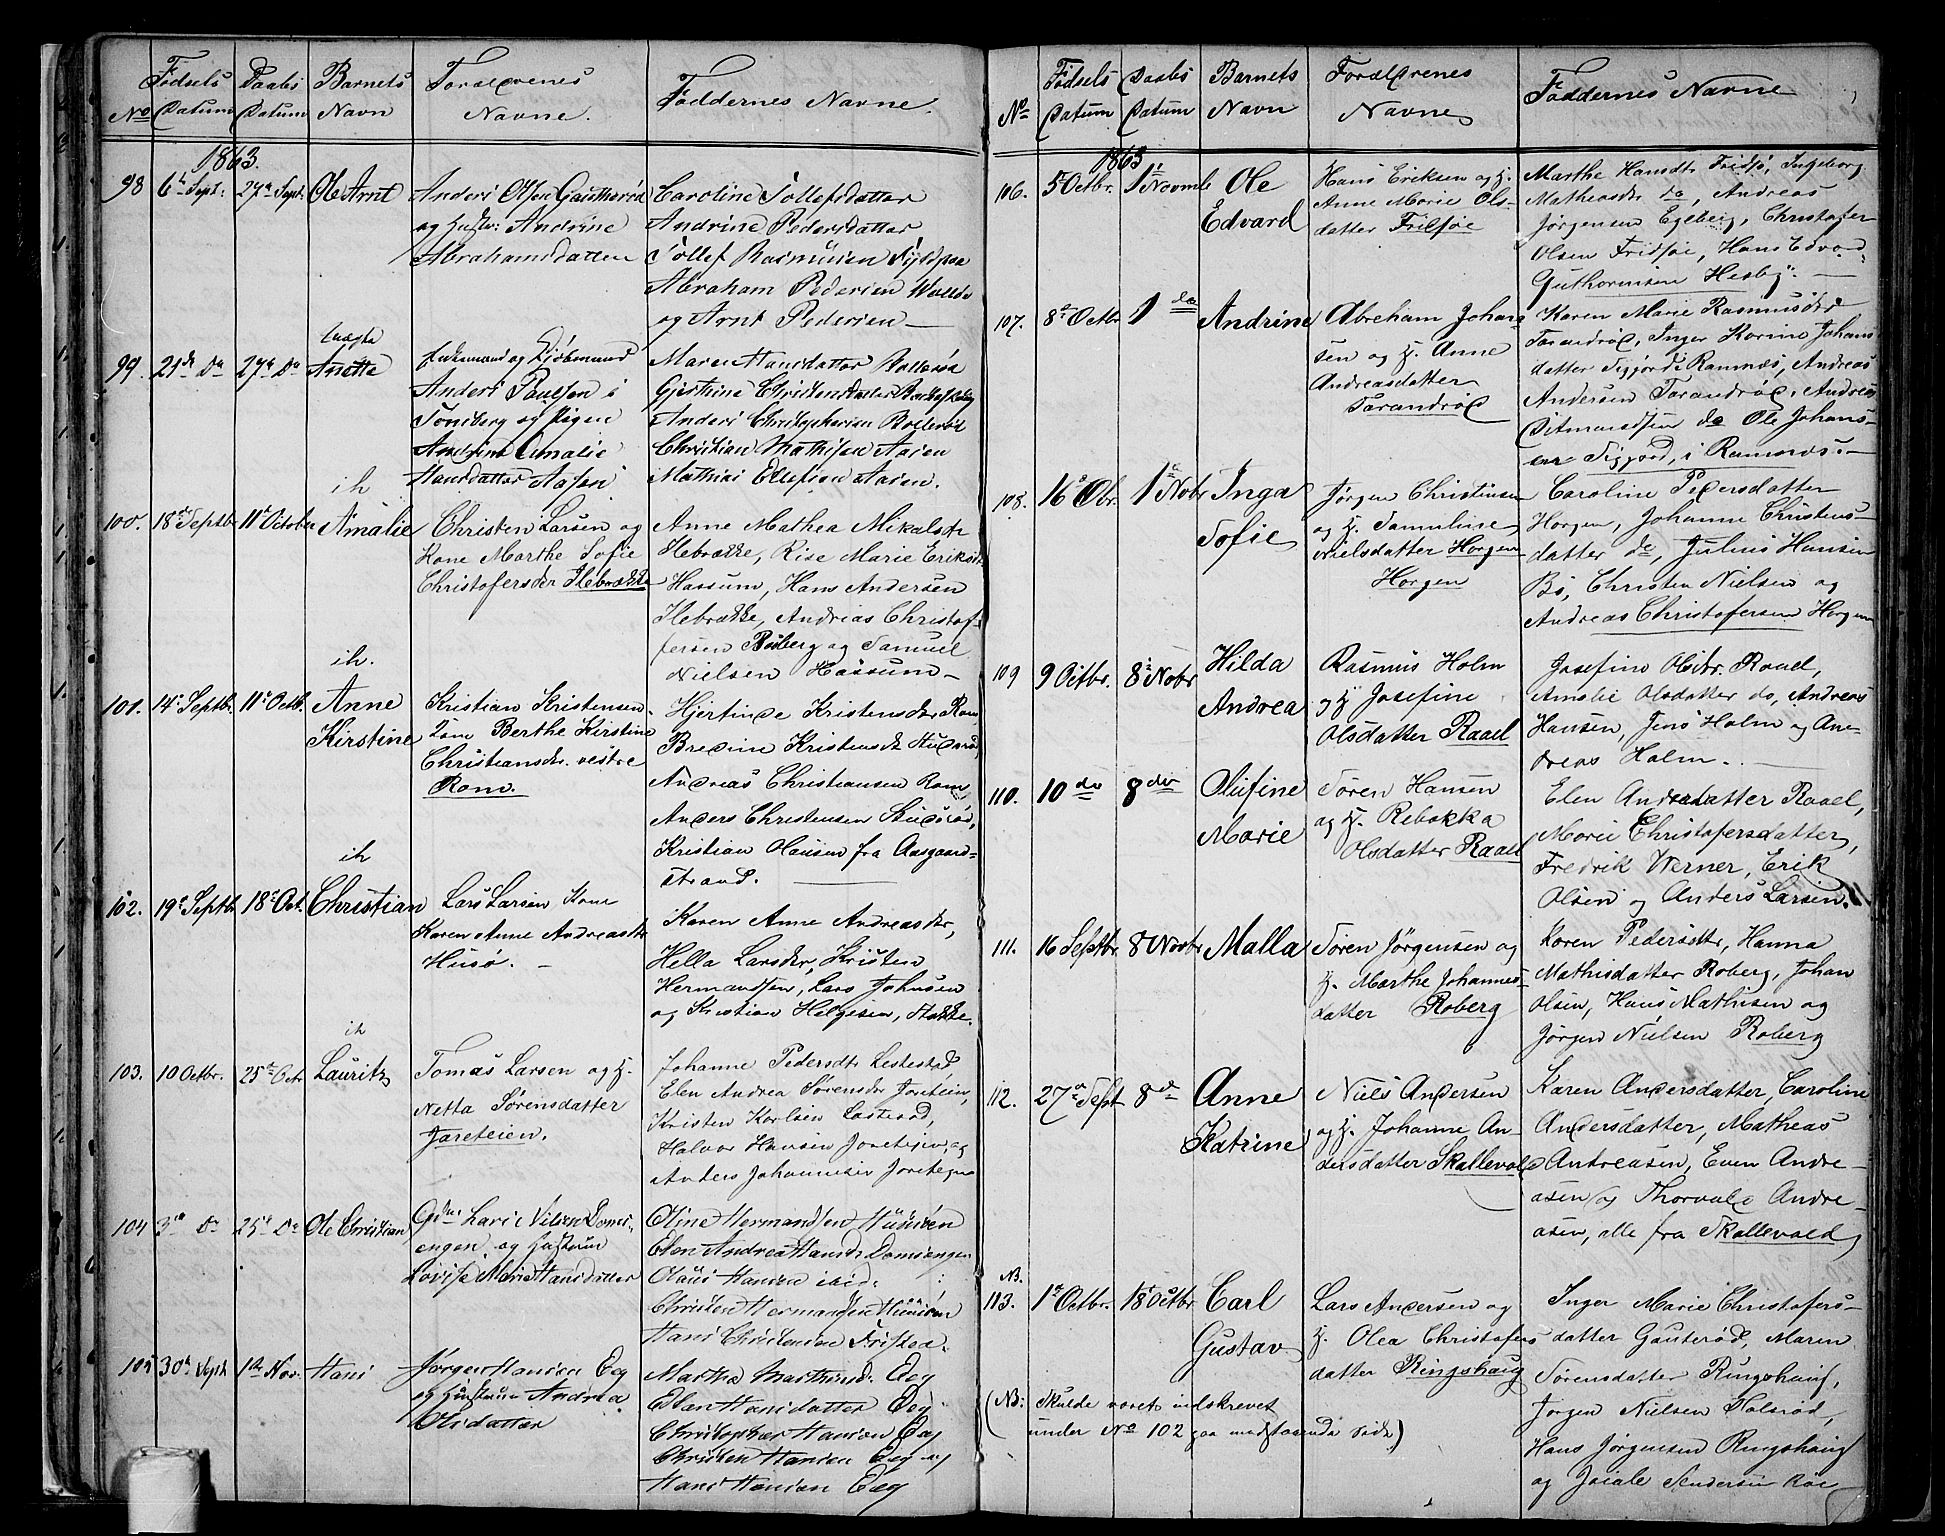 Fødsels Daabs Barnets Forældrenes Faddernes Navne
No Datum Datum Navn Navne.
1863.
98 6te Sept: 27de Sept: Ole Arnt
Anders Olsen
og Hustru: Andrine
Abrahamsdatter
Caroline Tollefsdatter
Andrine Pedersdatter
Tollef Rasmussen
Abraham Pedersen
og Arnt Pedersen
99. 21de Do 27de Do uægte Anette
Anders Paulsen i
Tønsberg og Pigen
Andrine Amalie
Hansdatter Aasen
Maren Hansdatter Bollerød
Christendatter
Anders Christophersen Bollerød
Christian Mathisen Aasen
Mathias Ellefsen Aasen.
100. 18de Septbr 11te October ih Amalie
Christen Larsen og
Kone Marthe Sofie
Christofersdr Ilebrække
Anne Mathea Mikalsdr
Ilebrække, Rise Marie Eriksdr
Hassum, Hans Andersen
Ilebrække, Andreas Christof-
fersen Roberg og Samuel
Nielsen Hassum
101. 14de Septbr. 11te Octb. ih. Anne
Kirstine
Kristian Kristensen
Kone Berthe Kirstine
Christiansdr. vestre
Rom.
Kristensdr Rom
Kristensdr
Andreas Christiansen Rom
Anders Christensen
Kristian Hansen fra Aasgaard-
strand.
102. 19de Septbr 18de Oct. ih Christian
Lars Larsen Kone
Karen Anne Andreasdr
Husø.
Karen Anne Andreasdr,
Hella Larsdr, Kristen
Hermandsen, Lars Johnsen
og Kristian Helgesen,
103. 10 Octbr. 25de Octr ih Lauritz
Tomas Larsen og H.
Netta Sørensdatter
Jareteien.
Johanne Pedersdtr
Elen Andrea Sørensdr Jareteien,
Kristen Karlsen
Halvor Hansen Jareteien, og
Anders Johannesen
104 3die Do 25de Do Ole Christian
Lars Nilsen Doms-
engen og Hustru
Lovise Marie Hansdatter
Oline Hermandsen
Elen Andrea Hansdr Domsengen
Olaus Hansen ibid:
Christen Hermandsen
Hans Christensen
105 30te Sept 1ste Nov. Hans
Jørgen Hansen Eeg
og Hustru Andrea
Olsdatter
Martha Mathisd: Eeg
Elen Hansdatter Eeg
Christopher Hansen Eeg
Christen Hansen Eeg og
Hans Hansen Eeg
Fødsels Daabs Barnets Forældrenes Faddernes Navne
No Datum Datum Navn Navne
1863
106. 5te Octbr. 1ste Novmb Ole
Edvard
Hans Eriksen og H.
Anne Marie Ols-
datter Frilsøe
Marthe Hansdtr Fridsø, Ingeborg
Matheasdr do, Andreas
Jørgensen Egeberg, Christofer
Olsen Fridsøe, Hans Edvard
Guthormsen Hesby.
107. 8de Octbr 1 do Andrine
Abreham Johan-
sen og H. Anne
Andreasdatter
Tarandrød
Karen Marie Rasmusdr
Tarandrød, Inger Karine Johans
datter i Ramnæs, Andreas
Andersen Tarandrød, Andreas
Ditmandsen do Ole Johan-
sen i Ramnæs.
108. 16de Obr. 1ste Nobr Inga
Sofie
Jørgen Christensen
og H. Samuline
Nielsdatter Horgen
Horgen
Caroline Pedersdatter
Horgen, Johanne Christens-
datter do, Julius Hansen
Bø, Christen Nielsen og
Andreas Christofersen Horgen
109 9 Octbr. 8de Nobr Hilda
Andrea
Rasmus Holm
og H. Josefine
Olsdatter Raael
Josefine Olsdtr. Raael,
Amalie Olsdatter do, Andreas
Hansen, Jens Holm og An-
dreas Holm.
110. 10 do 8 do Olufine
Marie
Søren Hansen
og H. Rebekka
Olsdatter Raael
Elen Andersdatter Raael,
Marie Christofersdatter,
Fredrik Werner, Erik
Olsen og Anders Larsen.
111. 16 Septbr 8de Novbr Malla
Søren Jørgensen og
H. Marthe Johannes-
datter Roberg
Karen Pedersdtr, Hanna
Mathisdatter Roberg, Johan
Olsen, Hans Mathisen og
Jørgen Nielsen Roberg
112. 27de Sept 8de Anne
Katrine
Niels Andersen
og H. Johanne An-
dersdatter Skallevold
Karen Andersdatter, Caroline
Andersdatter, Matheas
Andreasen, Even Andre-
asen og Thorvald Andre-
asen, alle fra Skallevold
NB.
113. 1ste Octbr. 18de Octbr Carl
Gustav
Lars Andersen og
H. Olea Christofers
datter Ringshaug
Inger Marie Christofers-
datter Gauterød, Maren
Sørensdatter Ringshaug,
Jørgen Nielsen Holsrød,
Hans Jørgensen Ringshaug
og
(NB: Skulde været indskrevet
under No 102 paa modstaaende Side)